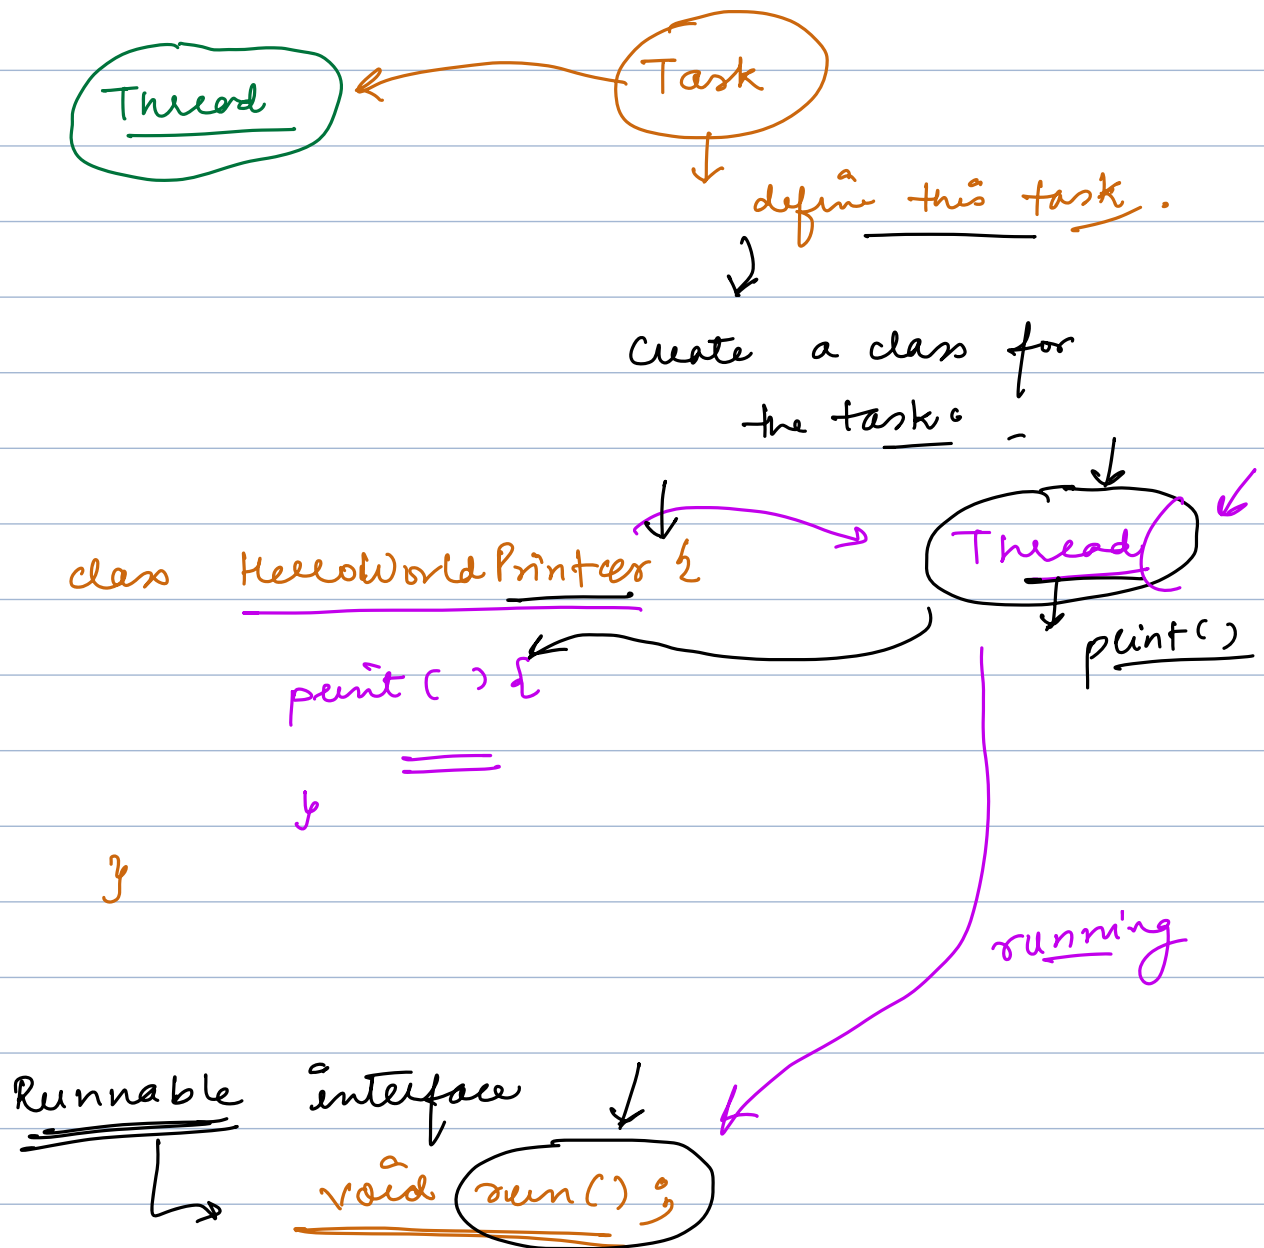 Thread Task
define this task.
Create a class for
the task.
Thread
class HelloWorldPrinter {
print()
print() {
}
}
running
Runnable interface
void run();